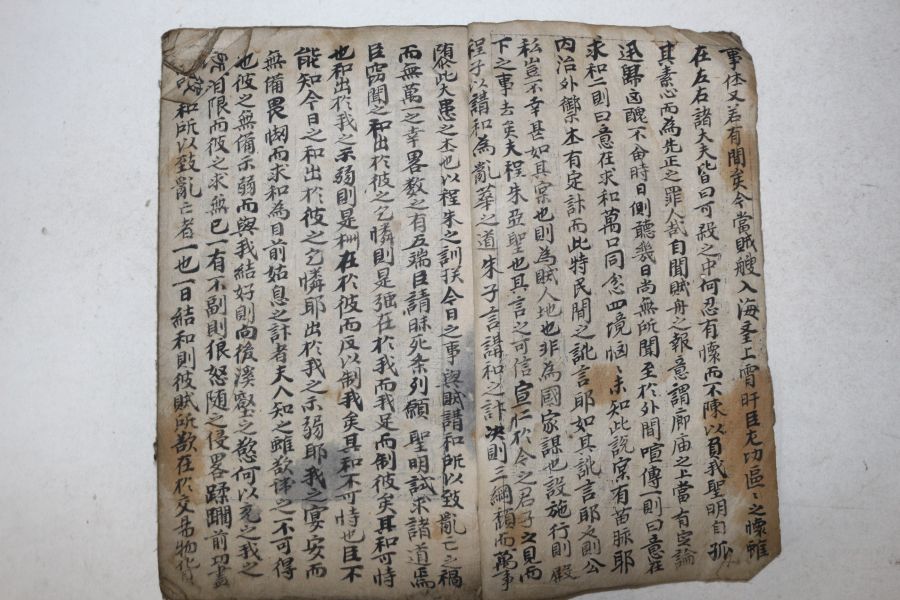 事体又若有間矣今當賊艘入海聖上宵旰臣尤功區〻之懷雖
在左右諸大夫皆曰可殺之中何忍有懷而不陳以負我聖明自孤
其素心而為先正之罪人哉自聞賊舟之報意謂廊庙之上當有定論
迅歸凶醜不留時日側聽幾日尚無所聞至於外間喧傳一則曰意在
求和一則曰意在求和萬口同忿四境恟〻未知此說果有苗脉耶
內治外禦本有定計而此特民間之訛言耶如其訛言耶則公
私豈不幸甚如其果也則為賊人地也非為國家謀也設施行則殿
下之事去矣夫程朱亞聖也其言之可信宜仁於今之君子之見而
程子以講和為亂華之道朱子言講和之計决則三綱頹而萬事
隳此大患之本也以程朱之訓揆今日之事與賊請和所以致亂亡之禍
而無萬一之幸畧数之有五端臣請昧死条列願 聖明試求諸道焉
臣竊聞之和出於彼之乞憐則是强在於我而我足而制彼矣其和可恃
也和出於我之示弱則是柄在於彼而反以制我矣其和不可恃也臣不
能知今日之和出於彼之乞憐耶出於我之示弱耶我之宴安而
無備畏㥘而求和為目前姑息之計者夫人知之雖欲諱之不可得
也彼之無備示弱而與我結好則向後溪壑之慾何以充之我之
有限而彼之求無已一有不副則很怒随之侵畧蹂躙前功盡
和所以致亂亡者一也一日結和則彼賊所欲在於交易物貨